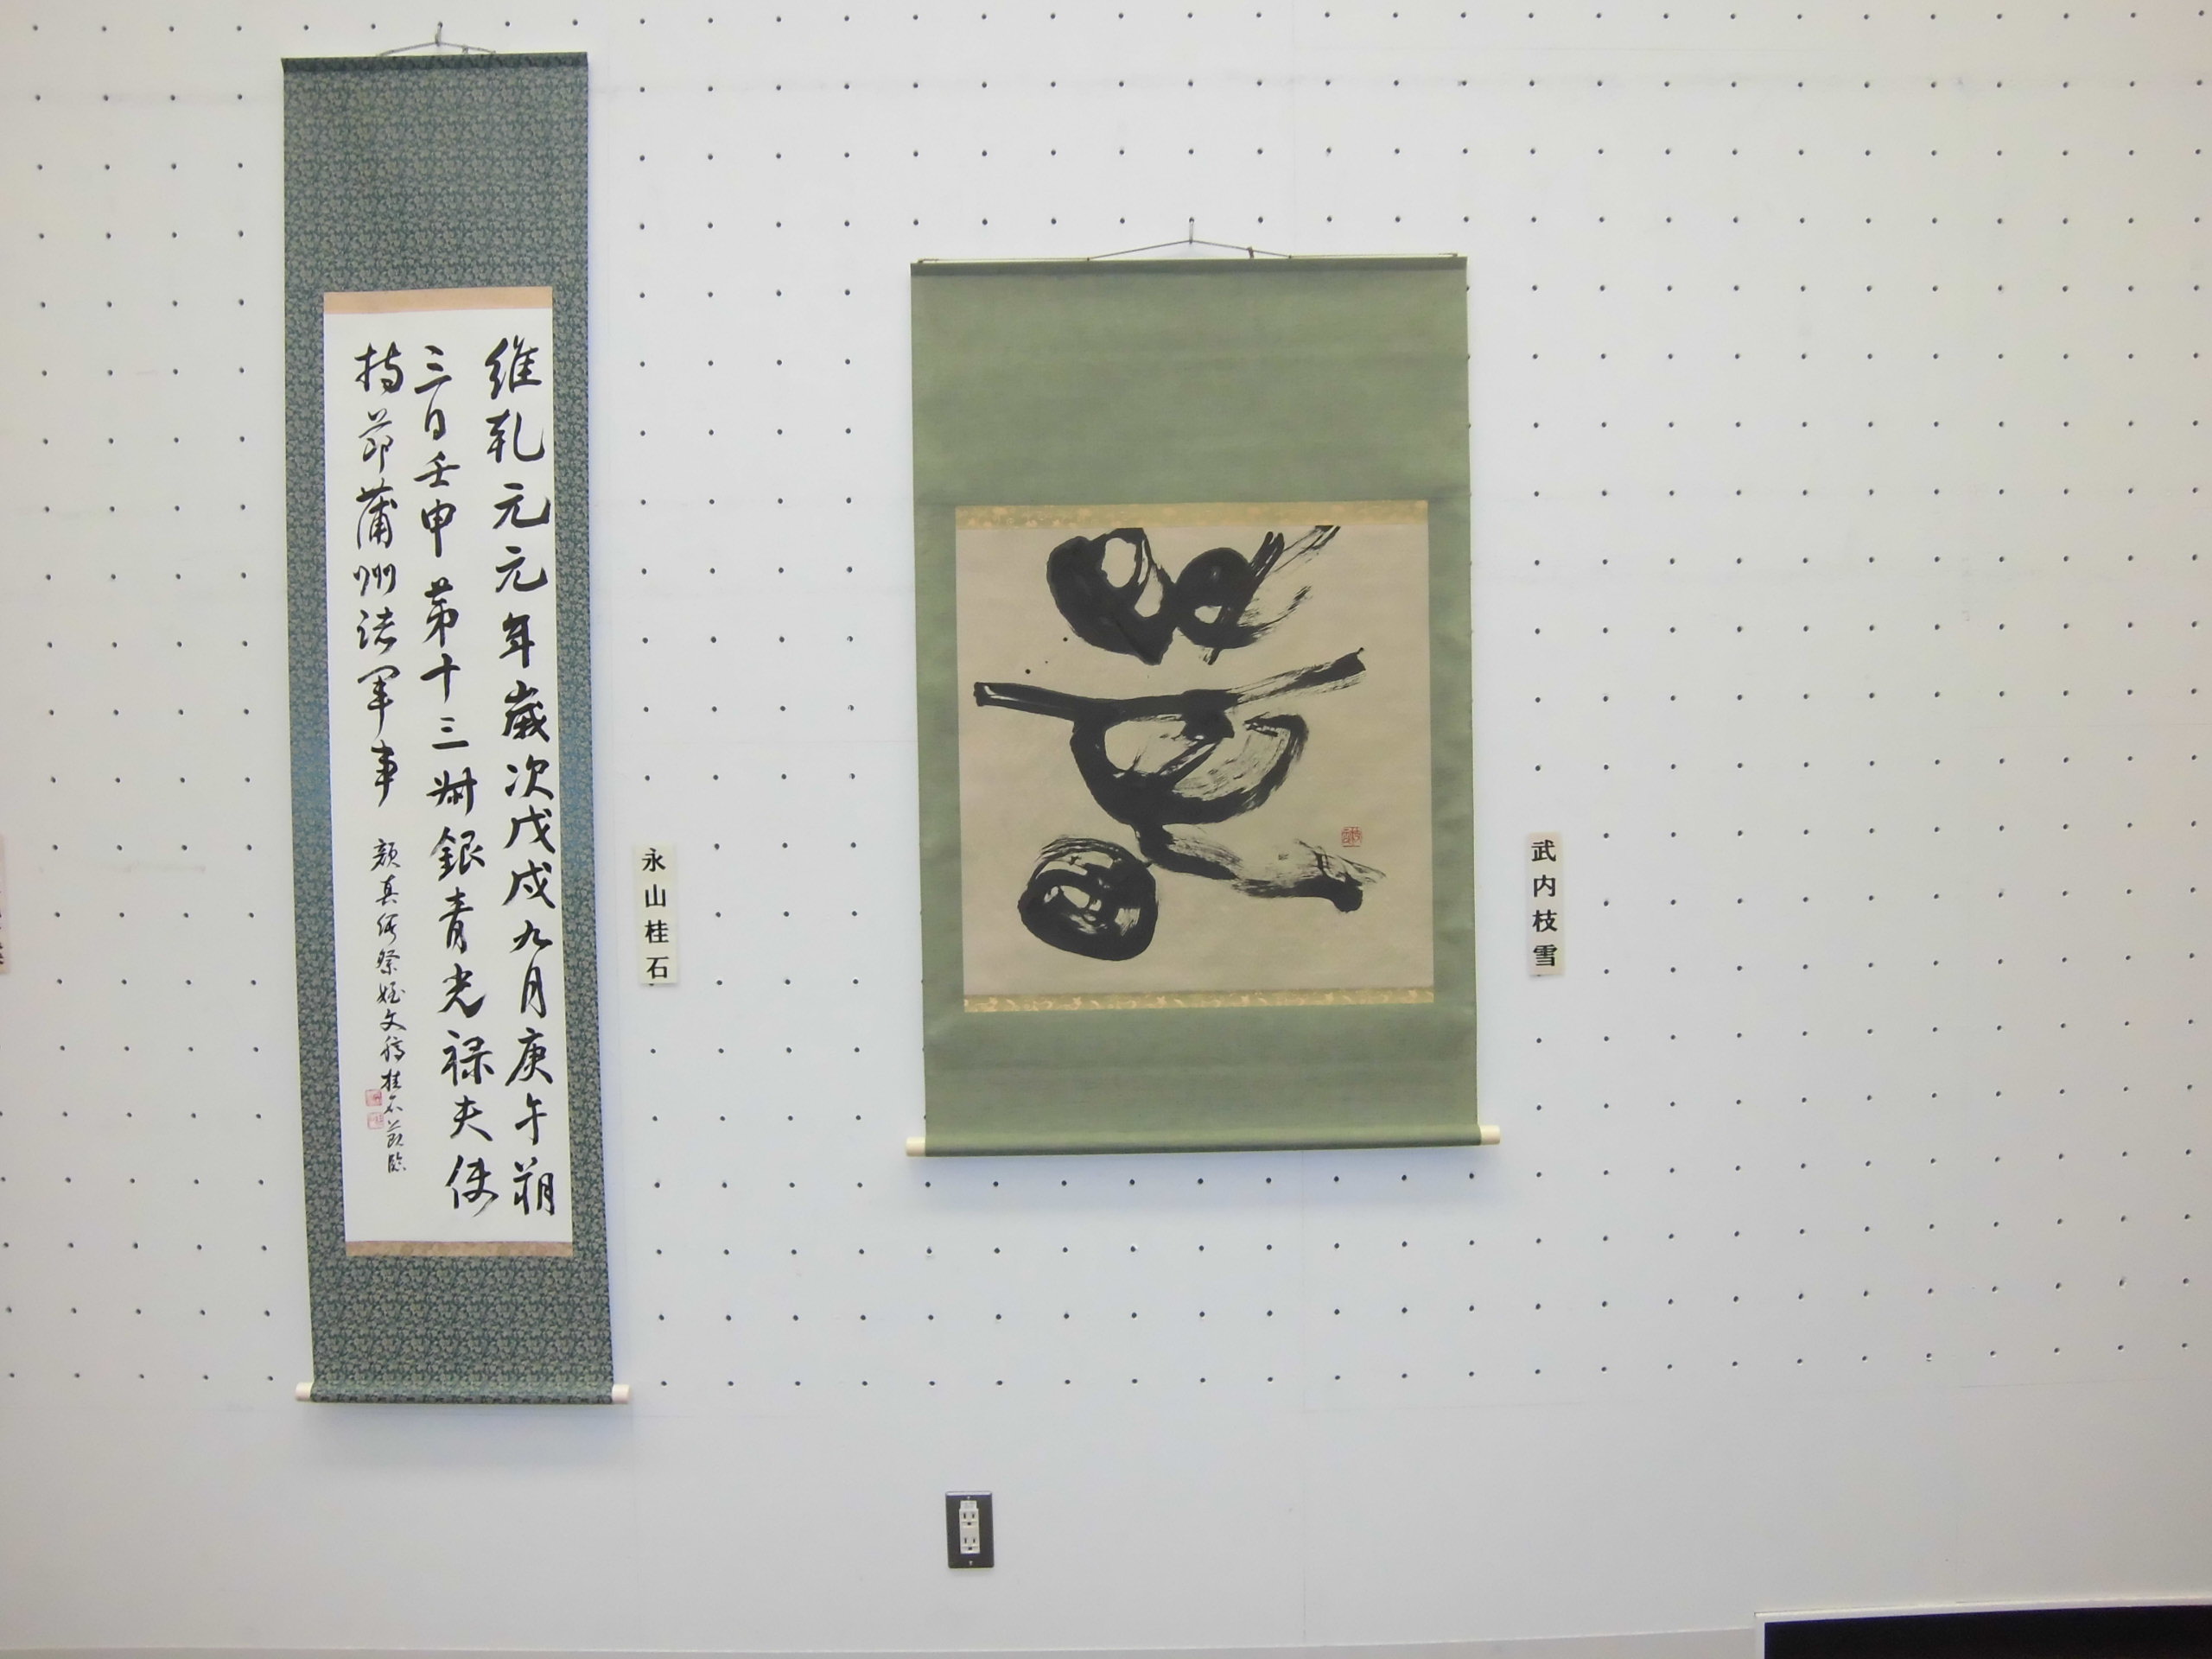 維乾元元年歳次戊戌九月庚午朔
三日壬申第十三叔銀青光禄夫使
持節蒲州諸軍事
顔真卿祭姪文稿桂石節臨
永山桂石
武内枝雪